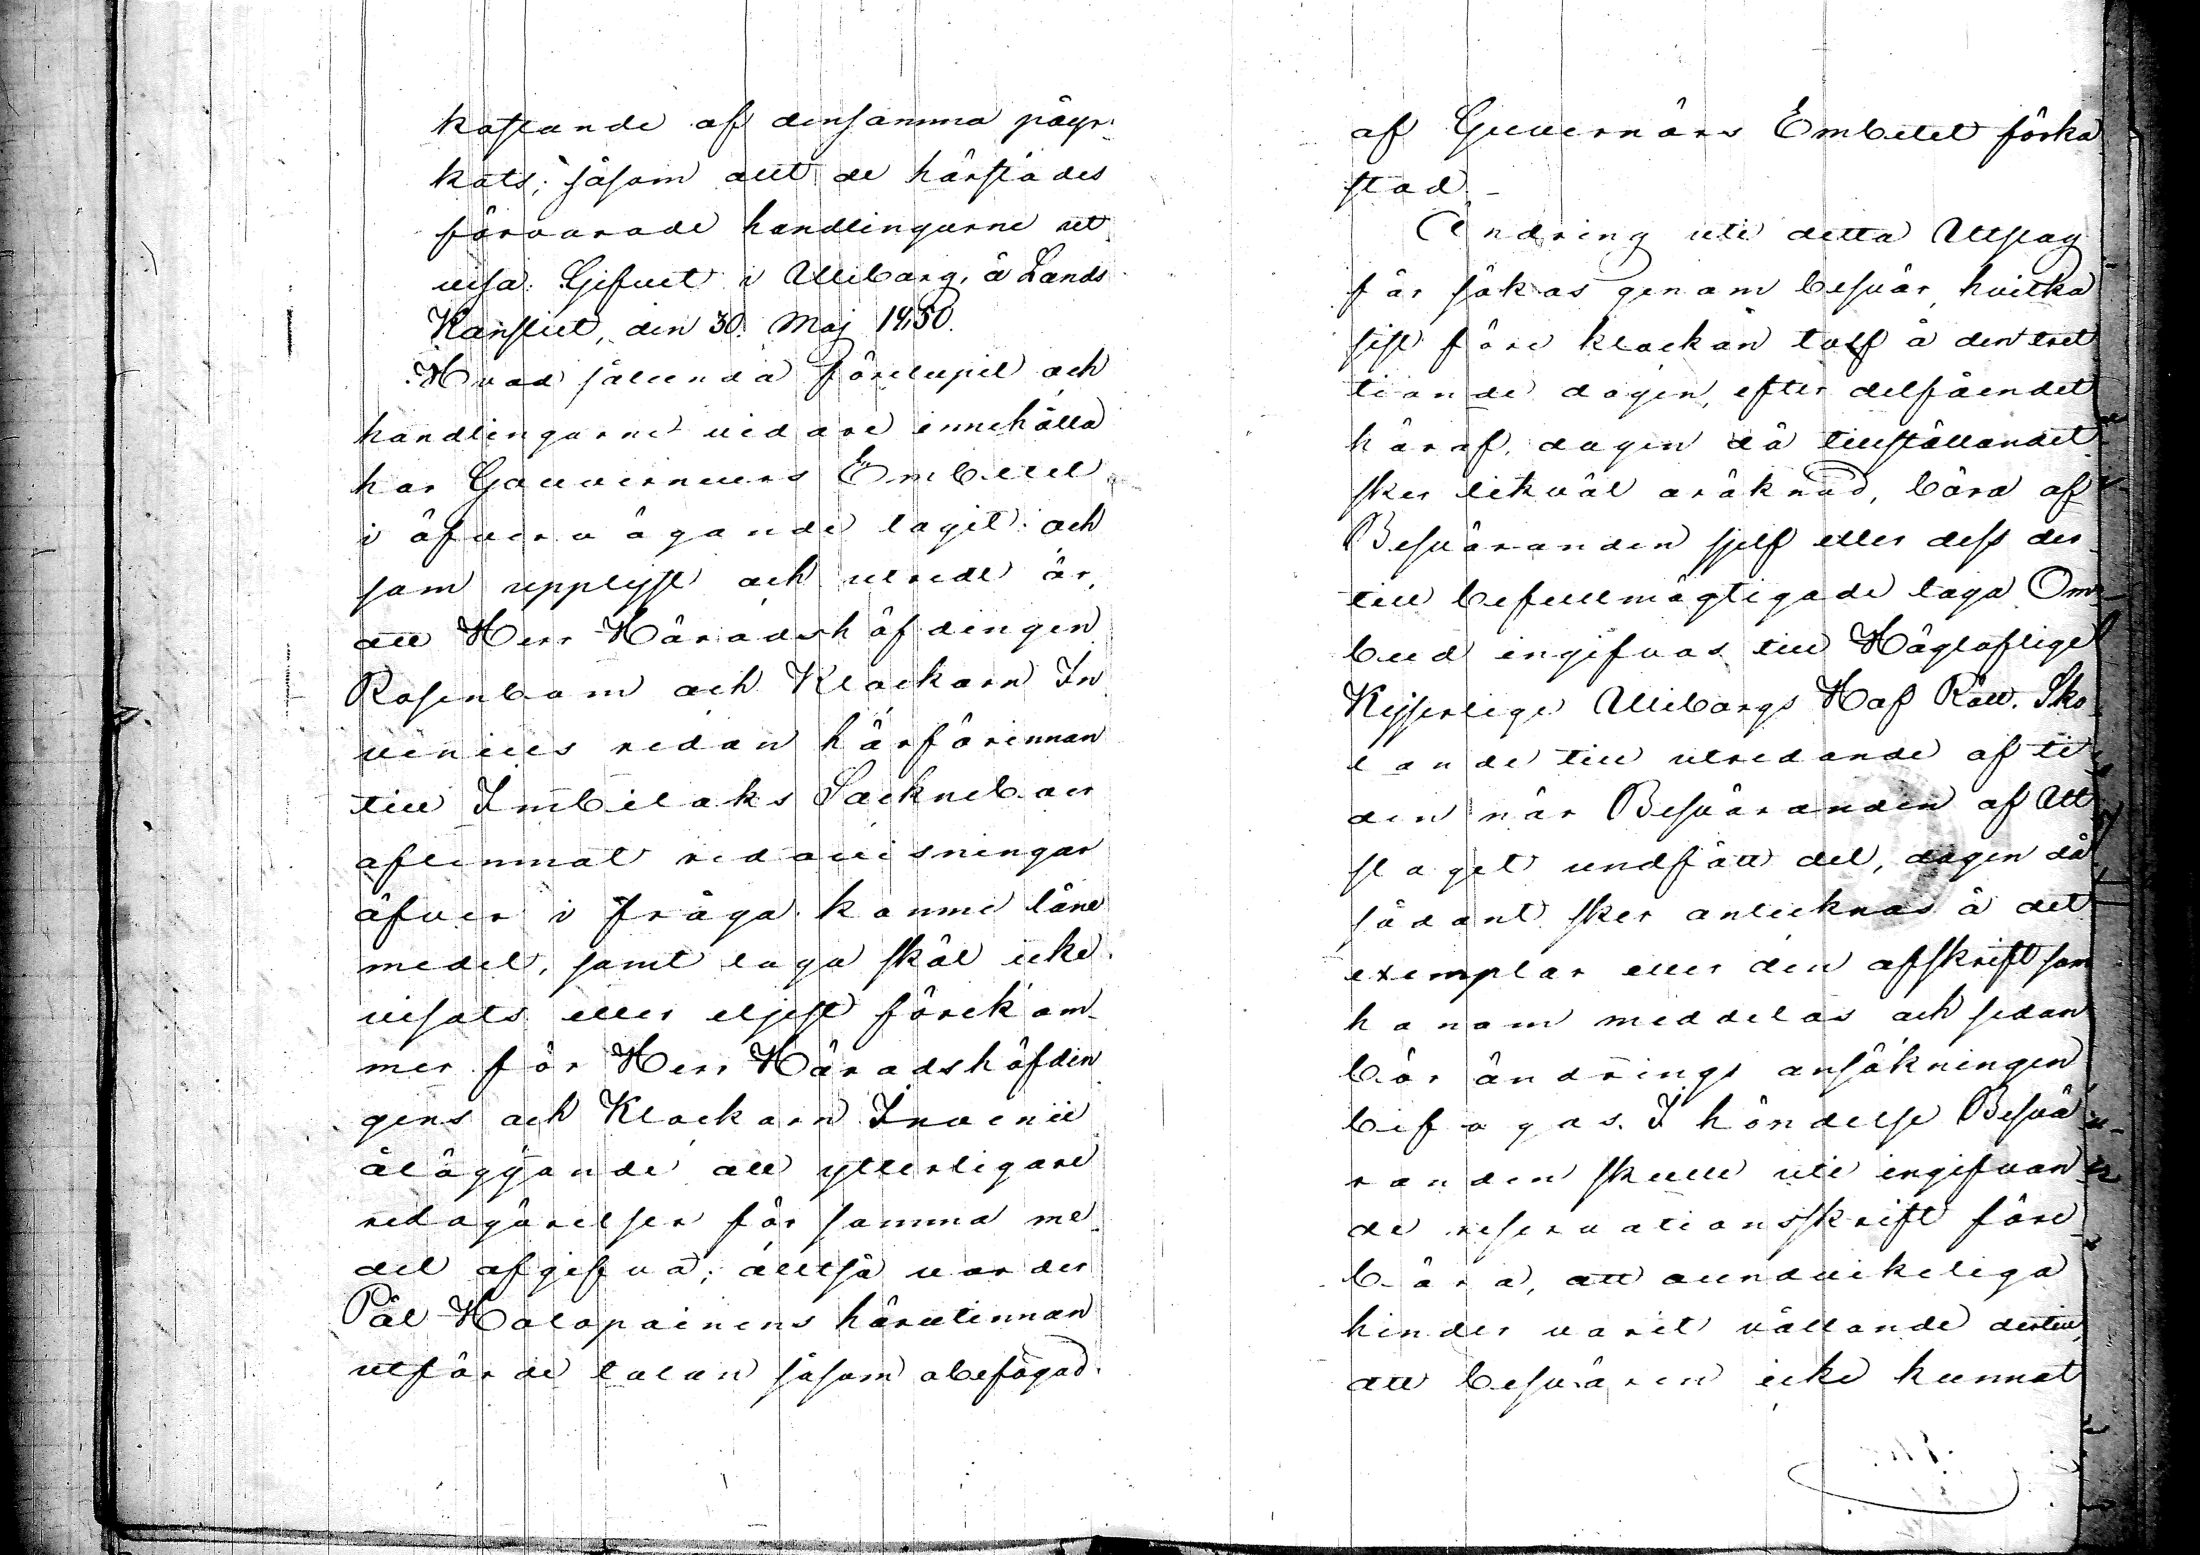 kastande af densamma påyr-
kats; såsom att de härstädes
förvarade handlingarne ut
visa. Gifvet i Wiborg, å Lands
Kansliet, den 30. Maj 1850.
Hvad sålunda förelupit och
handlingarne vidare innehålla
har Gouverneurs Embetet
i öfvervägande tagit; och
som upplyst och utredt är,
att Herr Häradshöfdingen
Rosenbom och Klockarn In
venius redan härförinnan
till Imbilaks Sockneboer
aflemnat redovisningar
öfver i fråga komne låne
medel, samt laga skäl icke
visats eller eljest förekom-
mer för Herr Häradshöfdin
gens och Klockarn Invenii
åläggande att ytterligare
redogörelser för samma me-
del afgifva; alltså varder
Pål Holopainens härutinnan
utförde talan såsom obefogad
af Guvernörs Embetet förka
stad. -
Ändring uti detta Utslag
får sökas genom besvär, hvilka
sist före klockan tolf å den tret
tionde dagen, efter delfåendet
häraf, dagen då tillställandet
sker likväl oräknad, böra af
Besväranden sjelf eller dess der
till befullmägtigade laga Om-
bud ingifvas till Högloflige
Kejserlige Wiborgs Hof Rätt. Sko
lande till utredande af ti
den när Besväranden af Ut
slaget undfått del, dagen då
sådant sker antecknas å det
exemplar eller den afskrift som
honom meddelas och sedan
bör ändrings ansökningen
bifogas. I händelse Besvä
randen skulle uti ingifvan
de reservationsskrift före
bära, att oundvikeliga
hinder varit vållande dertill,
att besvären icke kunnat